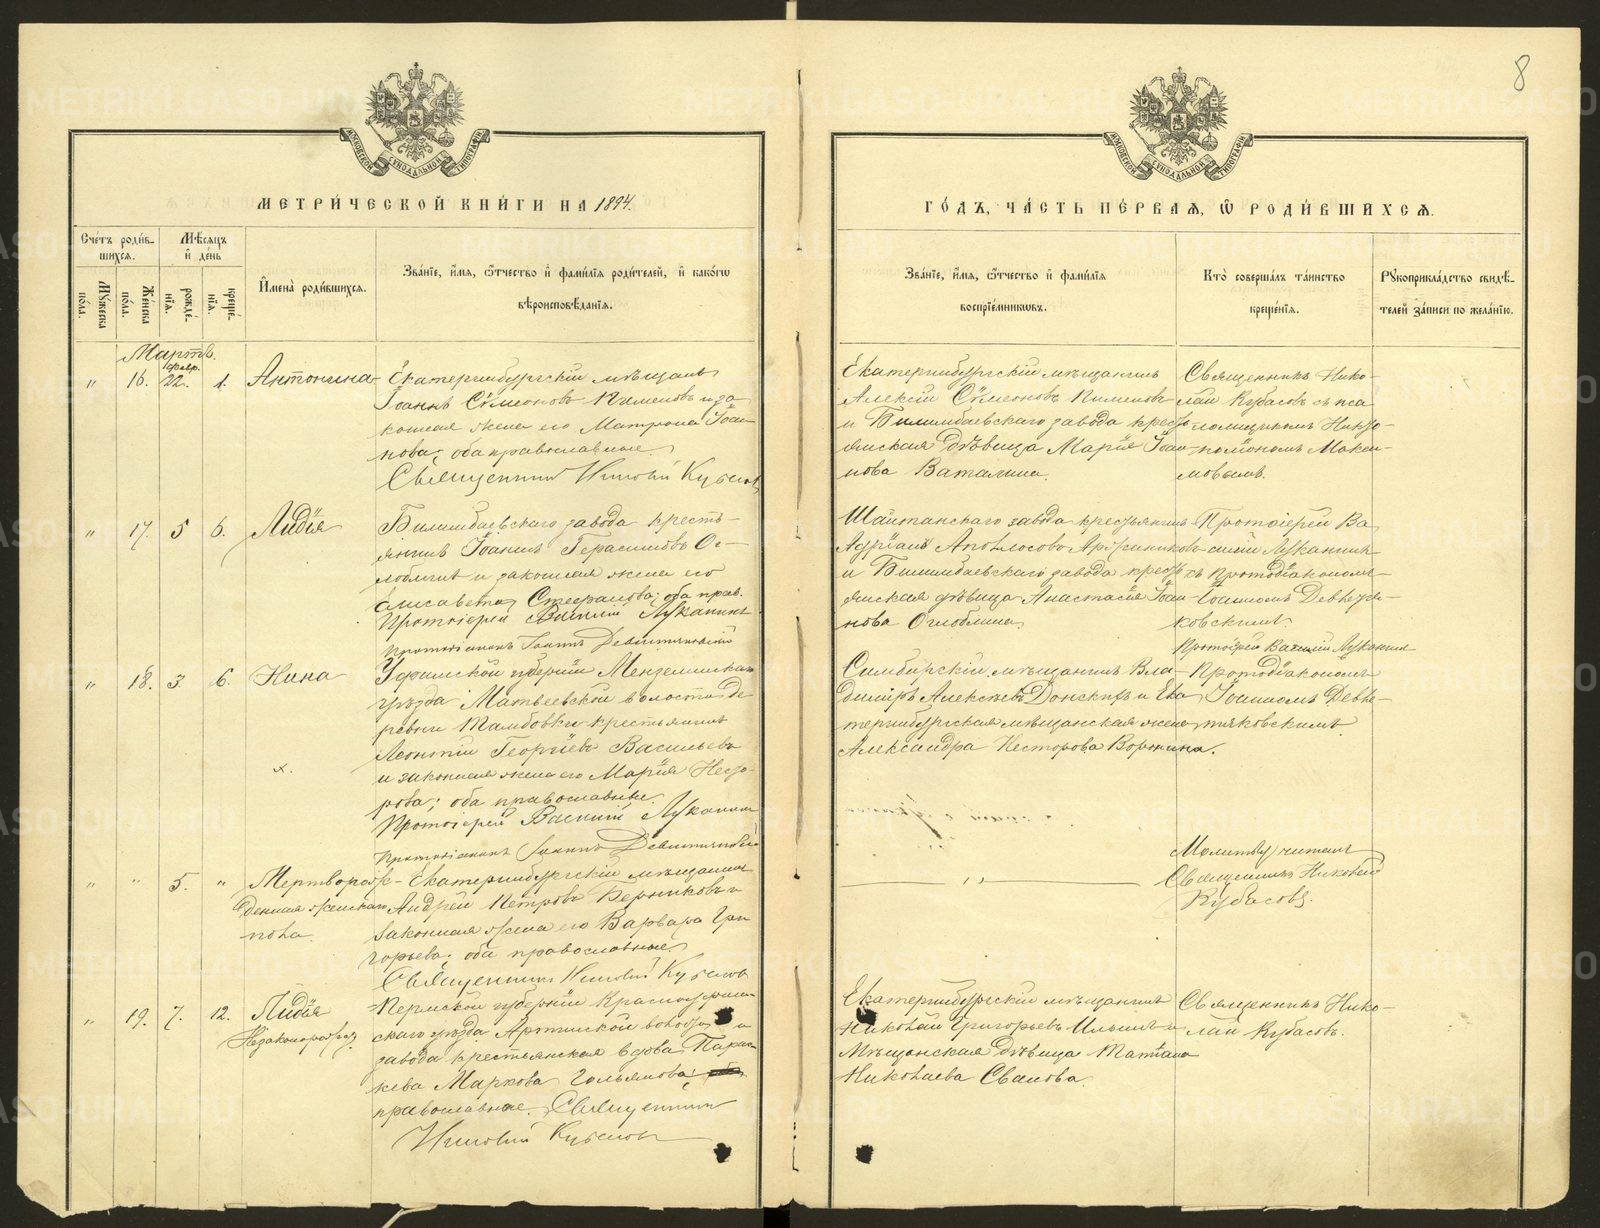 8
МОСКОВСКОЙ СѴНОДАЛЬНОЙ ТИПОГРАФІИ
МОСКОВСКОЙ СѴНОДАЛЬНОЙ ТИПОГРАФІИ
МЕТРИ́ЧЕСКОЙ КНИ́ГИ НА 1894.
ГО́ДЪ, ЧА́СТЬ ПЕ́РВАЯ, Ѡ РОДИ́ВШИХСЯ.
Сче́тъ роди́в-
шихся.
Мѣ́сяцъ
и де́нь
Му́жеска по́ла.
Же́нска по́ла.
рожде́-
нія.
креще́-
нія.
И҆мена̀ роди́вшихся.
Зва́ніе, и҆́мя, ѻ҆́тчество и҆ фами́лія роди́телей, и҆ како́гѡ
вѣроисповѣ́данія.
Зва́ніе, и҆́мя, ѻ҆́тчество и҆ фами́лія
воспріе́мникѡвъ.
Кто̀ соверша́лъ та́инство
креще́нія.
Рꙋкоприкла́дство свидѣ́-
телей за́писи по жела́нію.
Мартъ.
февр.
" 16. 22. 1. Антонина
Екатеринбургскій мѣщанинъ
Іоаннъ Сѵмеоновъ Пименовъ и за
конная жена его Матрона Іоан-
нова; оба православные.
Священникъ Николай Кубасовъ
Екатеринбургскій мѣщанинъ
Алексій Сѵмеоновъ Пименовъ
и Билимбаевскаго завода кресть
янская дѣвица Марія Іоан-
нова Ваталина.
Священникъ Нико-
лай Кубасовъ съ пса
ломщикомъ Никто-
полиономъ Макси-
мовымъ.
" 17. 5 6. Лидія
Билимбаевскаго завода кресть-
янинъ Іоаннъ Герасимовъ Ог-
лоблинъ и законная жена его
Елисавета Стефанова; оба прав.
Протоіерей Василій Луканинъ
Протодіаконъ Іоаннъ Девятьяковскій
Шайтанскаго завода крестьянинъ
Адріанъ Аполлосовъ
и Билимбаевскаго завода кресть
янская дѣвица Анастасія Іоан-
нова Оглоблина
Протоіерей Ва
силій Луканинъ
съ Протодіакономъ
Іоанномъ Девятья-
ковскимъ
Протоіерей Василій Луканинъ
" 18. 3. 6. Нина
х.
Уфимской губерніи Мензелинскаго
уѣзда Матвеевской волости де
ревни Тамбовки крестьянинъ
Леонтій Георгіевъ Васильевъ
и законная жена его Марія Несто-
рова; оба православные.
Протоіерей Василій Луканинъ
Протодіаконъ Іоаннъ Девятьяковскій
Симбирскій мѣщанинъ Вла-
диміръ Алексѣевъ Донскихъ и Ека
теринбургская мѣщанская жена
Александра Несторова Воронина.
Протодіакономъ
Іоанномъ Девя-
тьяковскимъ.
" " 5. " Мертворож-
денная женскаго
пола.
Екатеринбургскій мѣщанинъ
Андрей Петровъ Верниковъ и
законная жена его Варвара Гри
горьева; оба православные.
Священникъ Николай Кубасовъ
Молитву читалъ
Священникъ Николай
Кубасовъ.
" 19. 7. 12. Лидія
Незаконорожд.
Пермской губерніи Красноуфим-
скаго уѣзда Артинской волости и
завода крестьянская вдова Парас-
кева Маркова Гольянова;
православное. Священникъ
Николай Кубасовъ
Екатеринбургскій мѣщанинъ
Николай Григорьевъ Ильинъ и
Мѣщанская дѣвица Татіана
Николаева Сванова.
Священникъ Нико-
лай Кубасовъ.